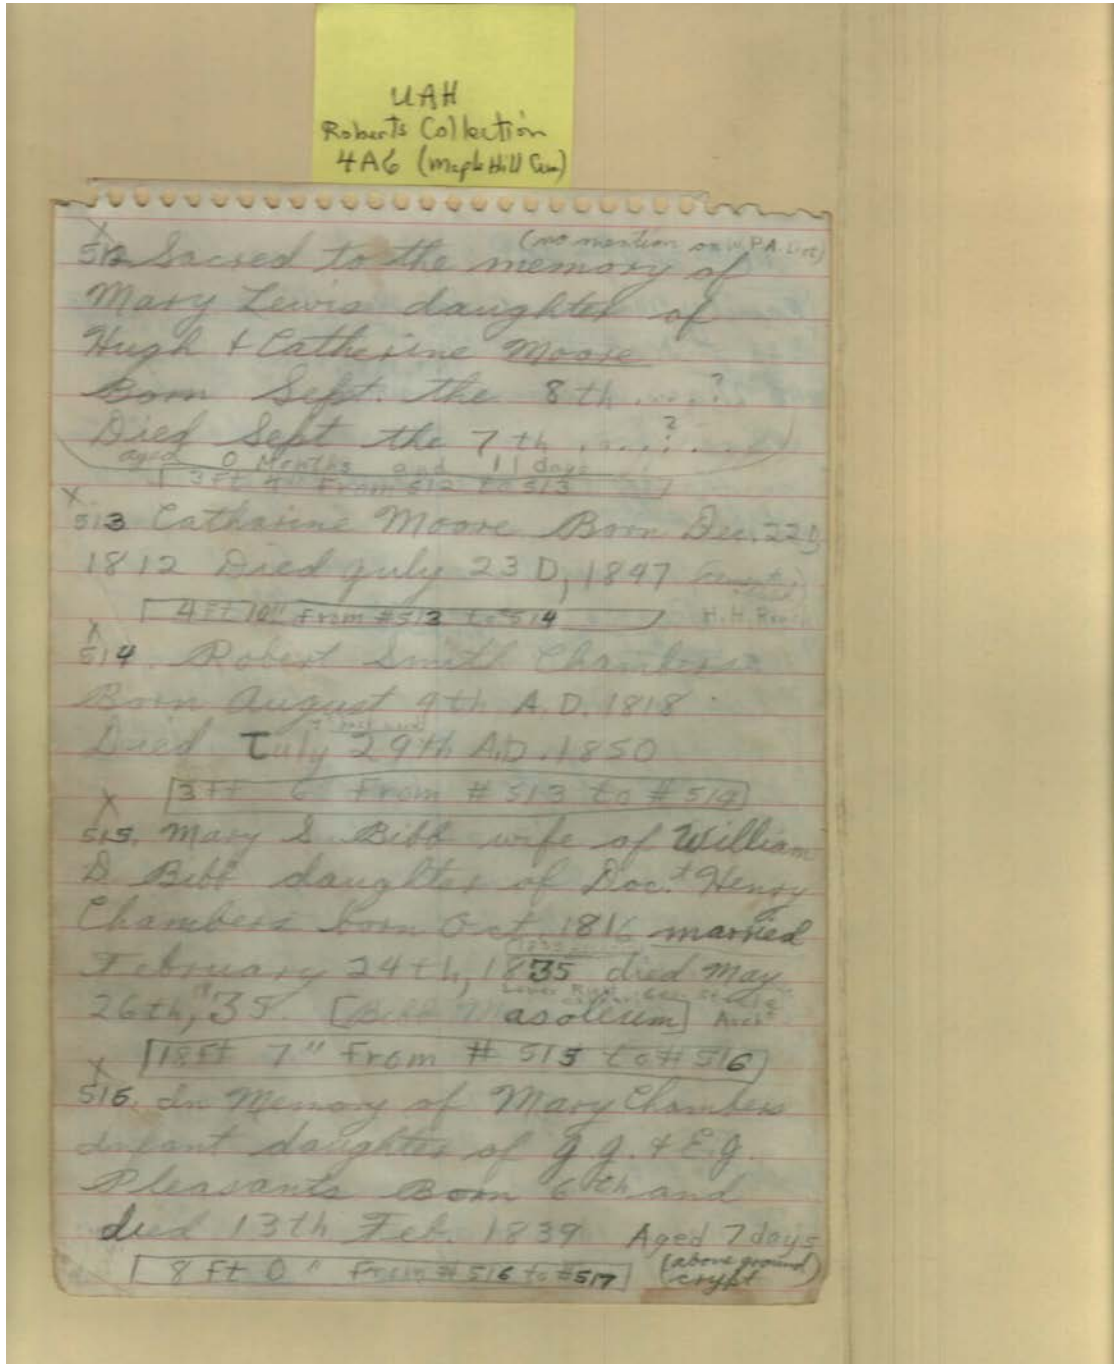 UAH
Roberts Collection
4A6 (Maple Hill Cem)
(no mention on W.P.A. List)
512 Sacred to the memory of
Mary Lewis daughter of
Hugh & Catherine Moore
Born Sept. the 8th ......?
Died Sept the 7th ......?
aged 0 Months and 11 days
3 ft 4" From 512 to 513
X
513 Catharine Moore Born Dec. 22D
1812 Died july 23 D, 1847
H.H.
4 Ft 10" From #513 to #514
X
514. Robert Smith Chambers
Born August 9th A.D. 1818
Died July 29th A.D. 1850
3 Ft 6 From # 513 to # 514
X
515. Mary S. Bibb wife of William
D. Bibb daughter of Doc.t Henry
Chambers born Oct. 1816 married
February 24th, 1835 died May
26th, "35. [Bibb Masoleum]
18 Ft 7" From # 515 to # 516
X
516. In Memory of Mary Chambers
infant daughter of G.G. & E.G.
Pleasants Born 6th and
died 13th Feb. 1839 Aged 7 days
(above ground)
crypt
8 Ft 0" From # 516 to #517